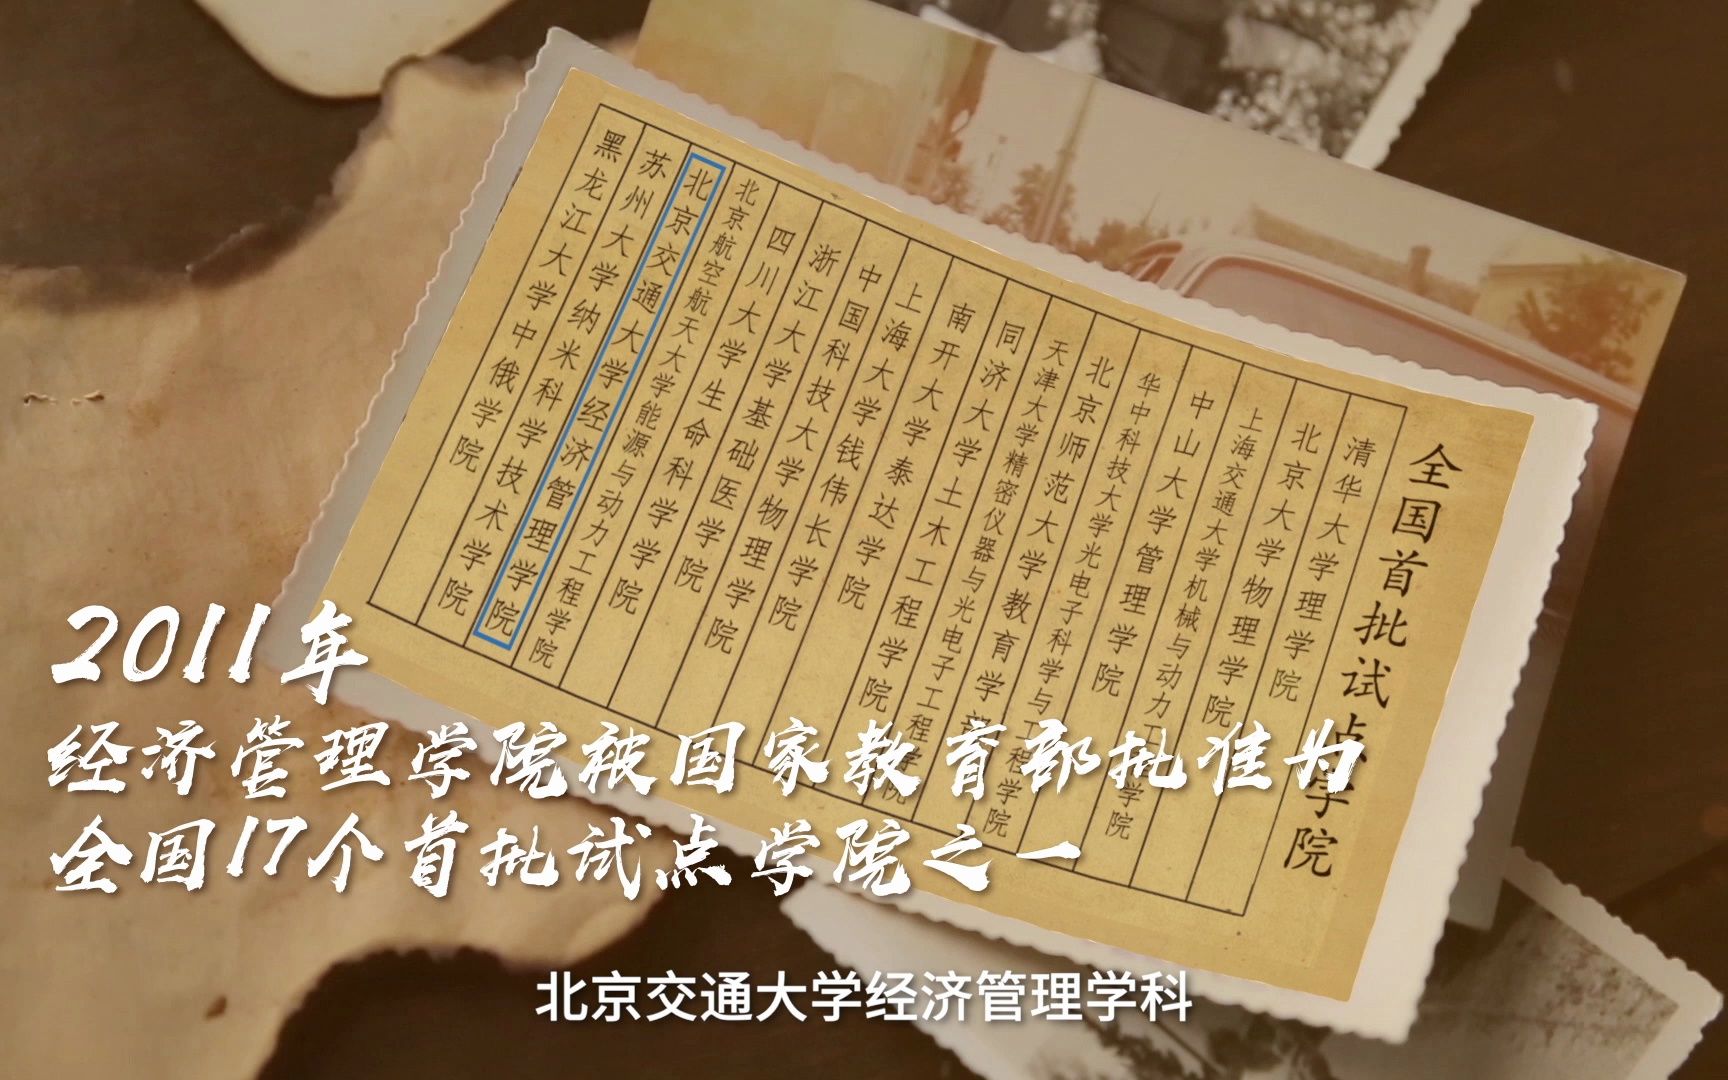 全国首批试点学院
清华大学理学院
北京大学物理学院
上海交通大学机械与动力工
中山大学管理学院
华中科技大学光电子科学与工程学院
北京师范大学教育学部
天津大学精密仪器与光电子工程学院
同济大学土木工程学院
南开大学泰达学院
上海大学钱伟长学院
中国科技大学物理学院
浙江大学基础医学院
四川大学生命科学学院
北京航空航天大学能源与动力工程学院
北京交通大学经济管理学院
苏州大学纳米科学技术学院
黑龙江大学中俄学院
2011年
经济管理学院被国家教育部批准为
全国17个首批试点学院之一
北京交通大学经济管理学科